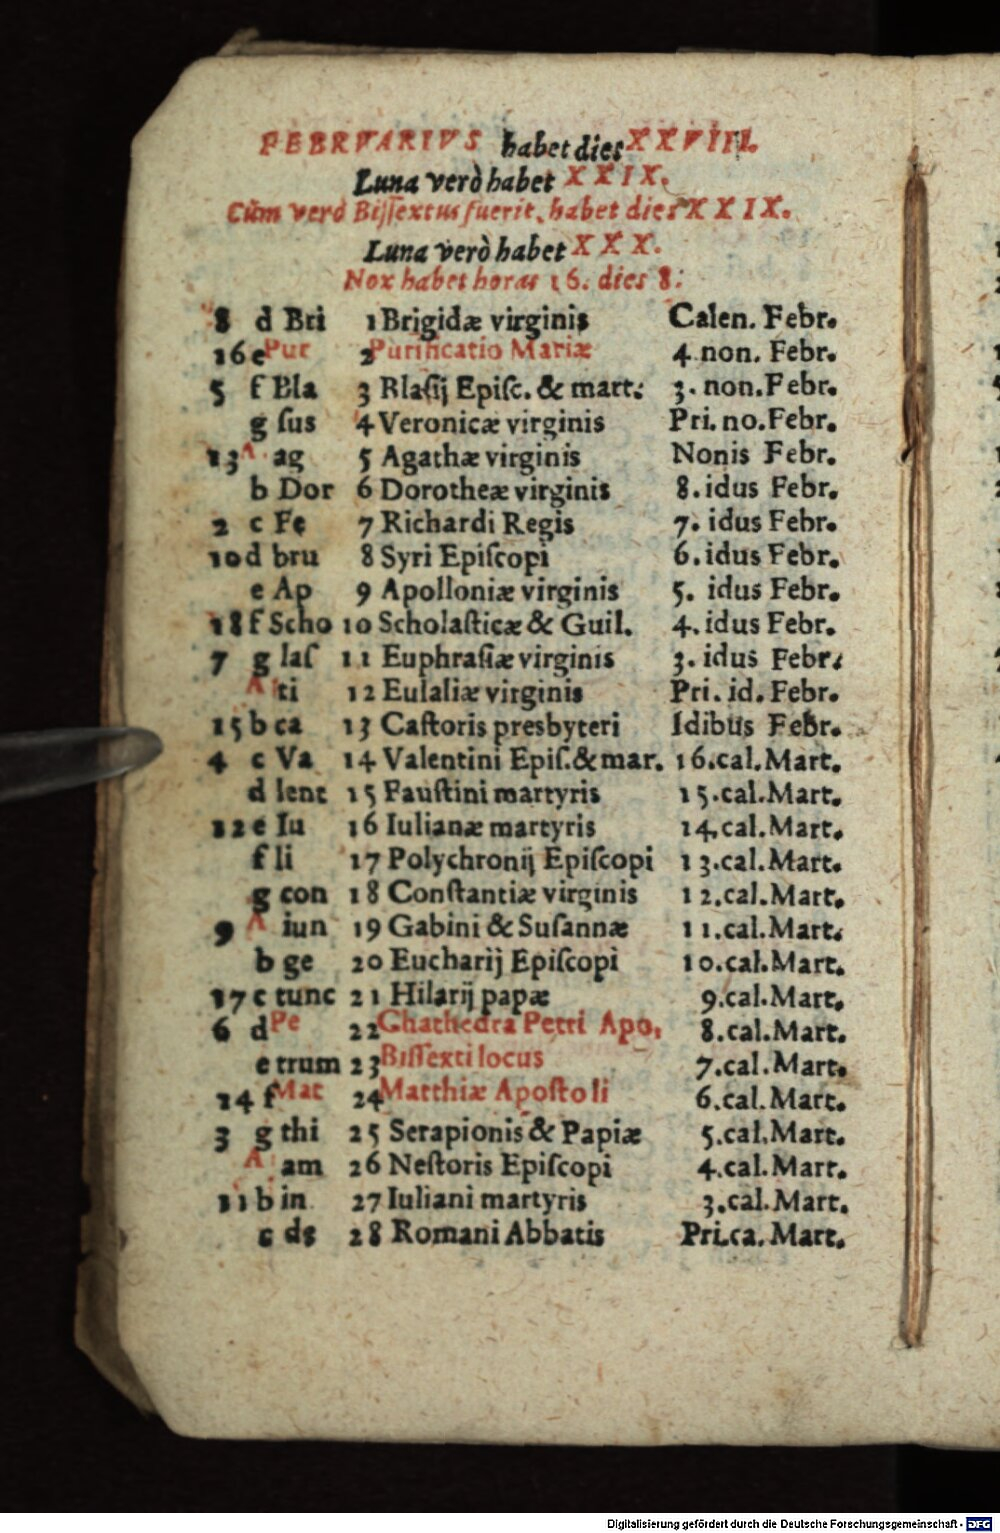 FEBRVARIVS habet dies XXVIII.
Luna verò habet XXIX.
Cũm verò Biſſextus fuerit, habet dies XXIX.
Luna verò habet XXX.
Nox habet horas 16. dies 8:
8 d Bri 1 Brigidæ virginis Calen. Febr.
16 e Pur 2 Purificatio Mariæ 4 non. Febr.
5 f Bla 3 Blaſij Epiſc. & mart: 3. non. Febr.
g ſus 4 Veronicæ virginis Pri. no. Febr.
13 A ag 5 Agathæ virginis Nonis Febr.
b Dor 6 Dorotheæ virginis 8. idus Febr.
2 c Fe 7 Richardi Regis 7. idus Febr.
10 d bru 8 Syri Epiſcopi 6. idus Febr.
e Ap 9 Apolloniæ virginis 5. idus Febr.
18 f Scho 10 Scholaſticæ & Guil. 4. idus Febr.
7 g laſ 11 Euphraſiæ virginis 3. idus Febr.
A ti 12 Eulaliæ virginis Pri. id. Febr.
15 b ca 13 Caſtoris presbyteri Idibus Febr.
4 c Va 14 Valentini Epiſ. & mar. 16. cal. Mart.
d lent 15 Fauſtini martyris 15. cal. Mart.
12 e Iu 16 Iulianæ martyris 14. cal. Mart.
f li 17 Polychronij Epiſcopi 13. cal. Mart.
g con 18 Conſtantiæ virginis 12. cal. Mart.
9 A iun 19 Gabini & Suſannæ 11. cal. Mart.
b ge 20 Eucharij Epiſcopi 10. cal. Mart.
17 c tunc 21 Hilarij papæ 9. cal. Mart.
6 d Pe 22 Chathedra Petri Apo. 8. cal. Mart.
e trum 23 Biſſexti locus 7. cal. Mart.
14 f Mat 24 Matthiæ Apoſtoli 6. cal. Mart.
3 g thi 25 Serapionis & Papiæ 5. cal. Mart.
A am 26 Neſtoris Epiſcopi 4. cal. Mart.
11 b in 27 Iuliani martyris 3. cal. Mart.
c de 28 Romani Abbatis Pri. ca. Mart.
Digitalisierung gefördert durch die Deutsche Forschungsgemeinschaft - DFG